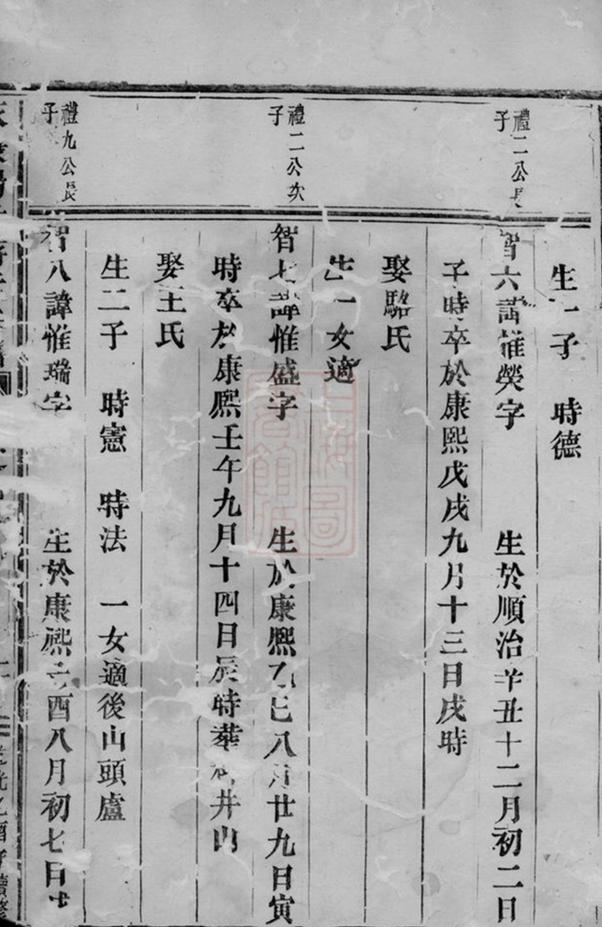 禮二公長子
生一子 時德
智六諱惟榮字 生於順治辛丑十二月初二日
子時卒於康熙戊戌九月十三日戌時
娶駱氏
生一女適
禮二公次子
智七諱惟盛字 生於康熙乙巳八月廿九日寅
時卒於康熙壬午九月十四日辰時葬 井山
娶王氏
生二子 時憲 時法 一女適後山頭盧
禮九公長子
智八諱惟瑞字 生於康熙 酉八月初七日